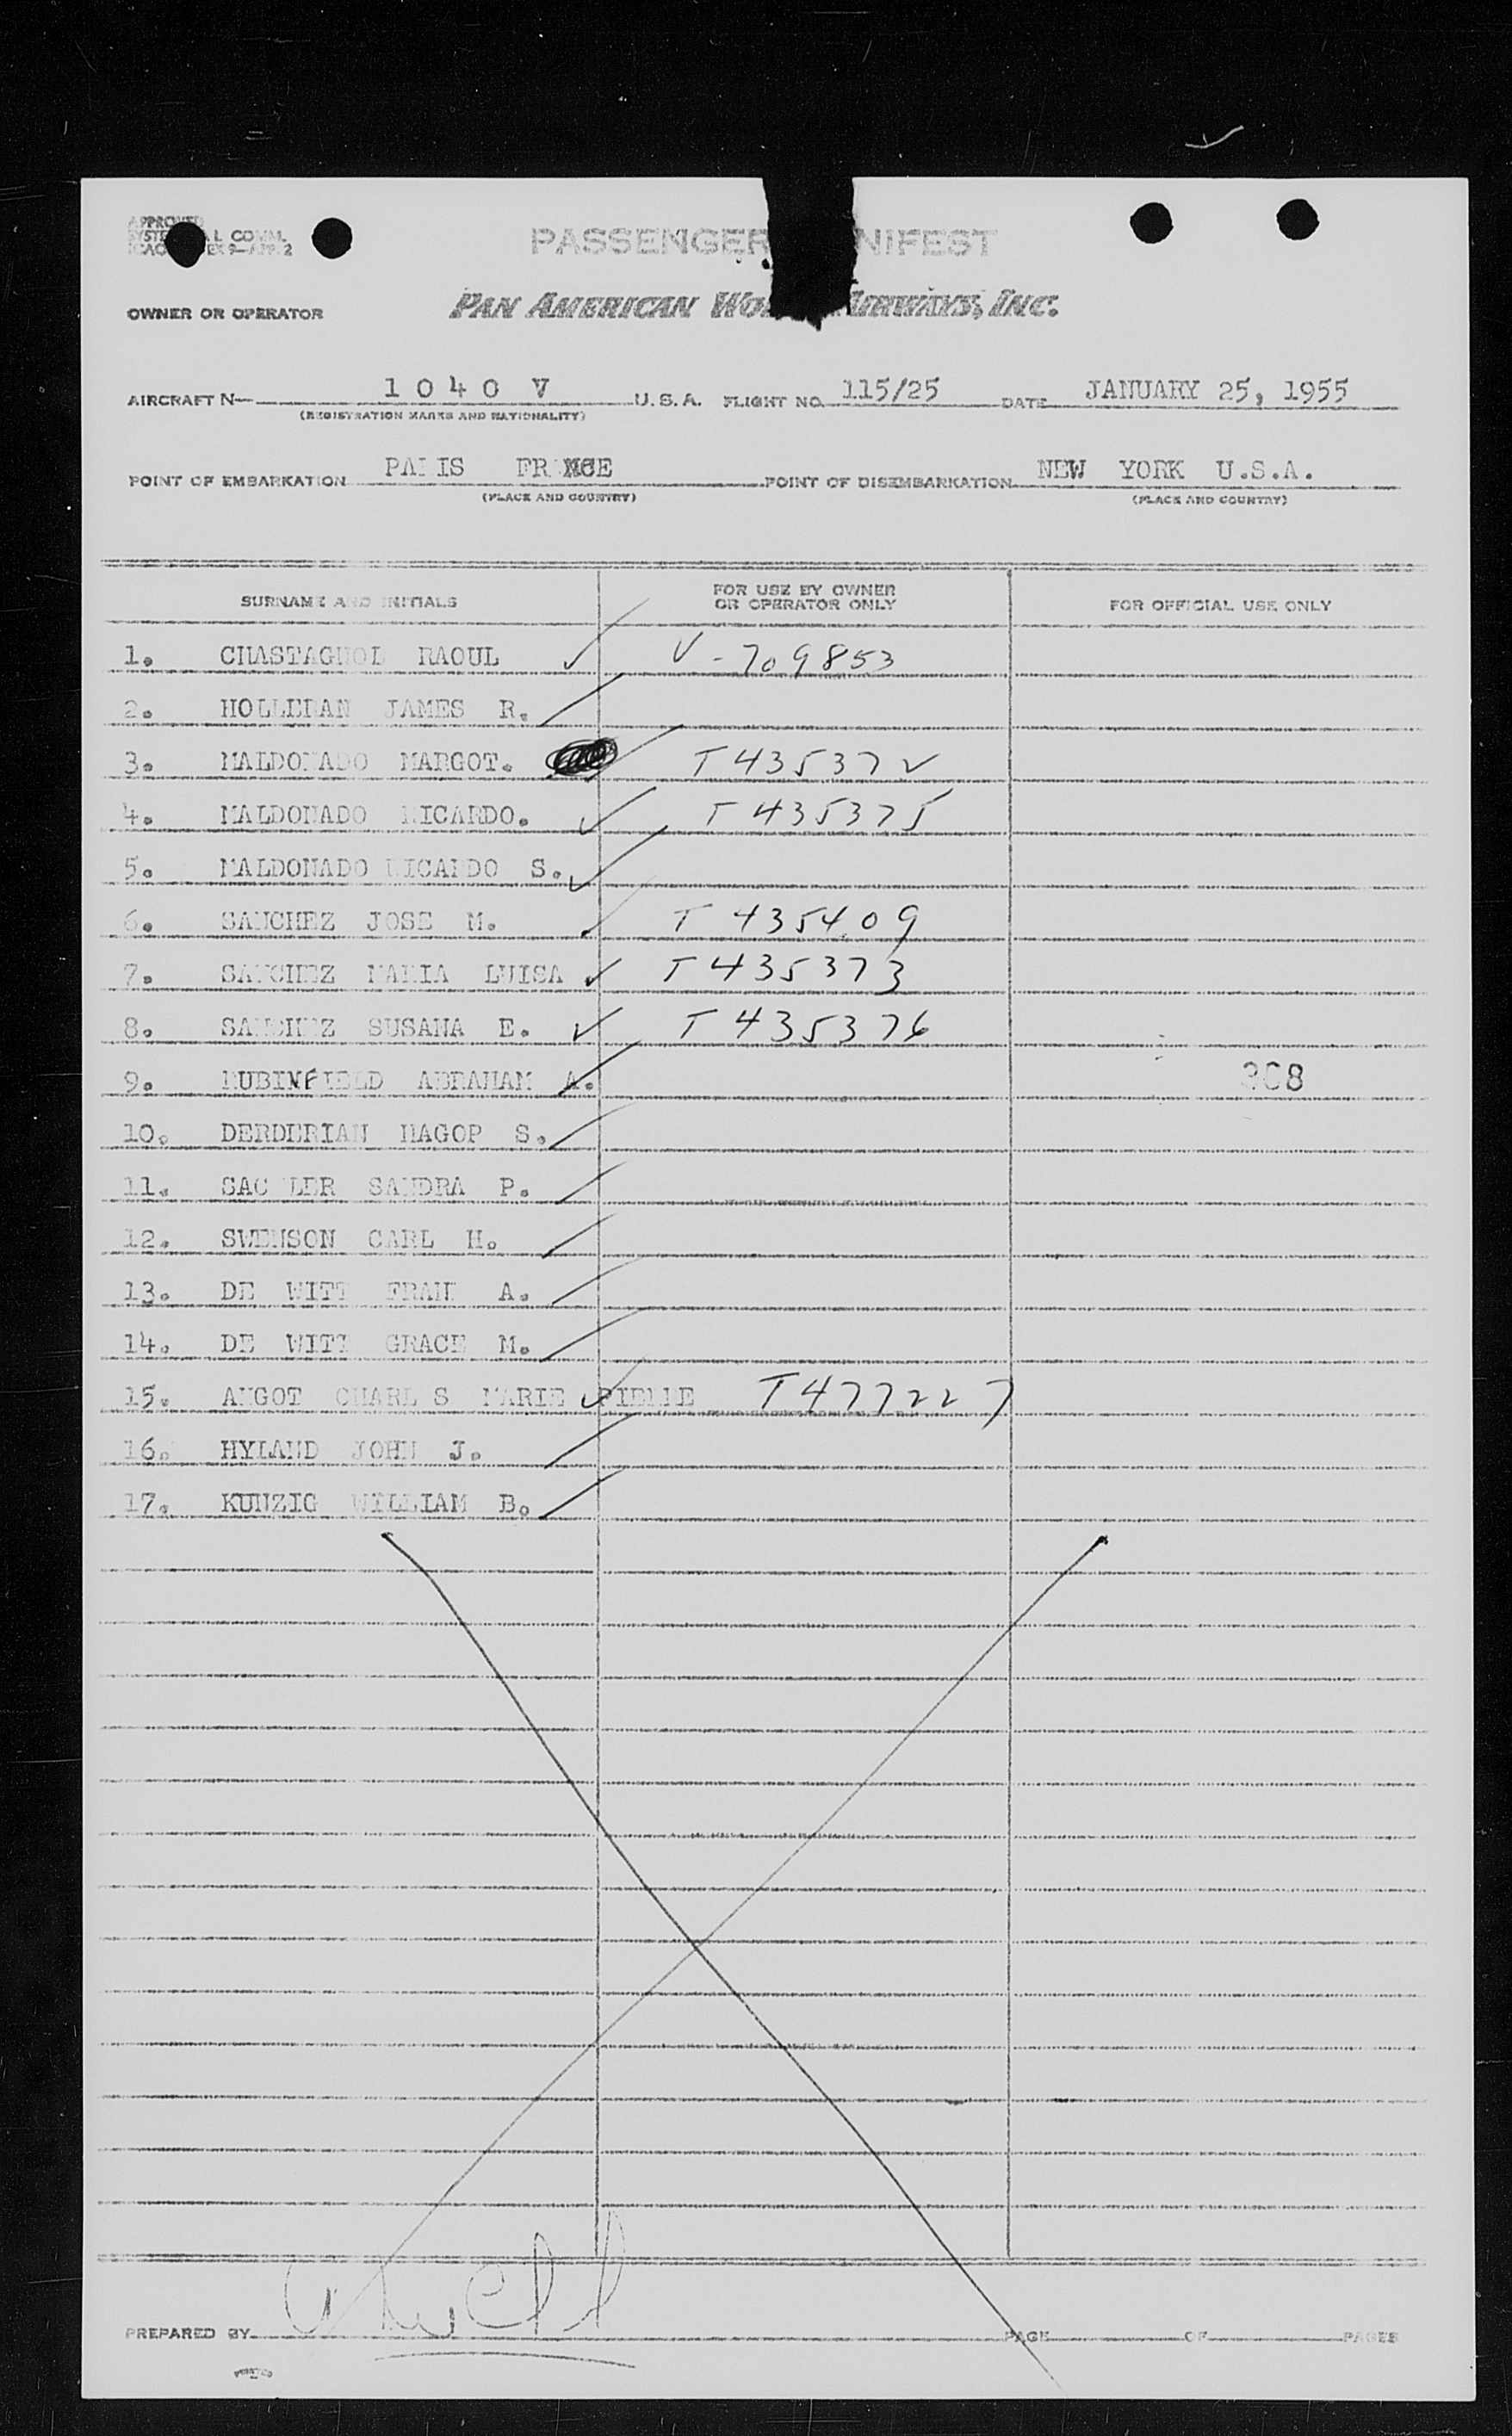 APPROVED
PASSENGER NIFEST
OWNER OR OPERATOR PAN AMERICAN WO AIRWAYS, INC.
AIRCRAFT N— 1 0 4 0 V U.S.A. FLIGHT NO. 115/25 DATE JANUARY 25, 1955
(REGISTRATION MARKS AND NATIONALITY)
POINT OF EMBARKATION PA IS FR NCE POINT OF DISEMBARKATION NEW YORK U.S.A.
(PLACE AND COUNTRY) (PLACE AND COUNTRY)
SURNAME AND INITIALS FOR USE BY OWNER OR OPERATOR ONLY FOR OFFICIAL USE ONLY
1. CHASTAGNOL RAOUL V-709853
2. HOLLERAN JAMES R.
3. MALDONADO MARGOT. T435372
4. MALDONADO RICARDO. T435375
5. MALDONADO RICARDO S.
6. SANCHEZ JOSE M. T435409
7. SANCHEZ MARIA LUISA T435373
8. SANCHEZ SUSANA E. T435376
9. RUBINFIELD ABRAHAM A. 308
10. DERDERIAN HAGOP S.
11. SAC LER SANDRA P.
12. SWENSON CARL H.
13. DE WITT FRAN A.
14. DE WITT GRACE M.
15. ANGOT CHARL S MARIE PIERRE T477227
16. HYLAND JOHN J.
17. KUNZIG WILLIAM B.
PREPARED BY PAGE OF PAGES